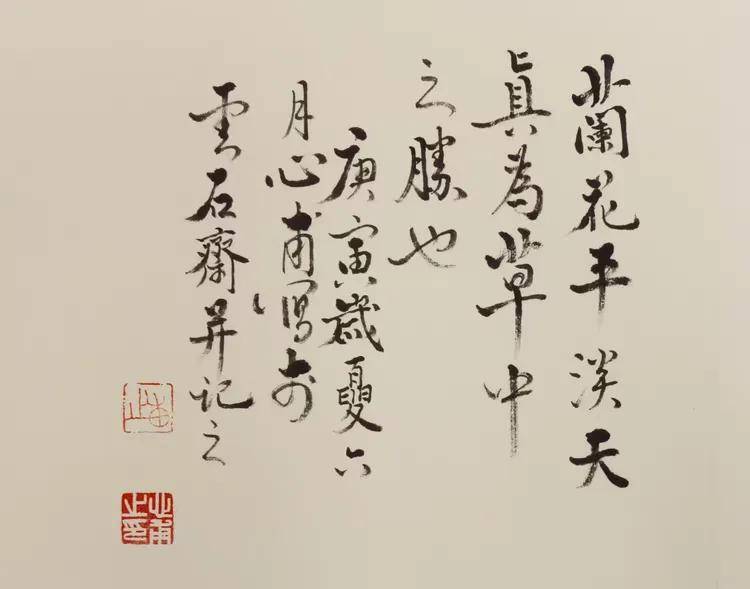 蘭花平淡天
真為草中
之勝也
庚寅歲夏六
月心甫寫於
雲石齋并記之